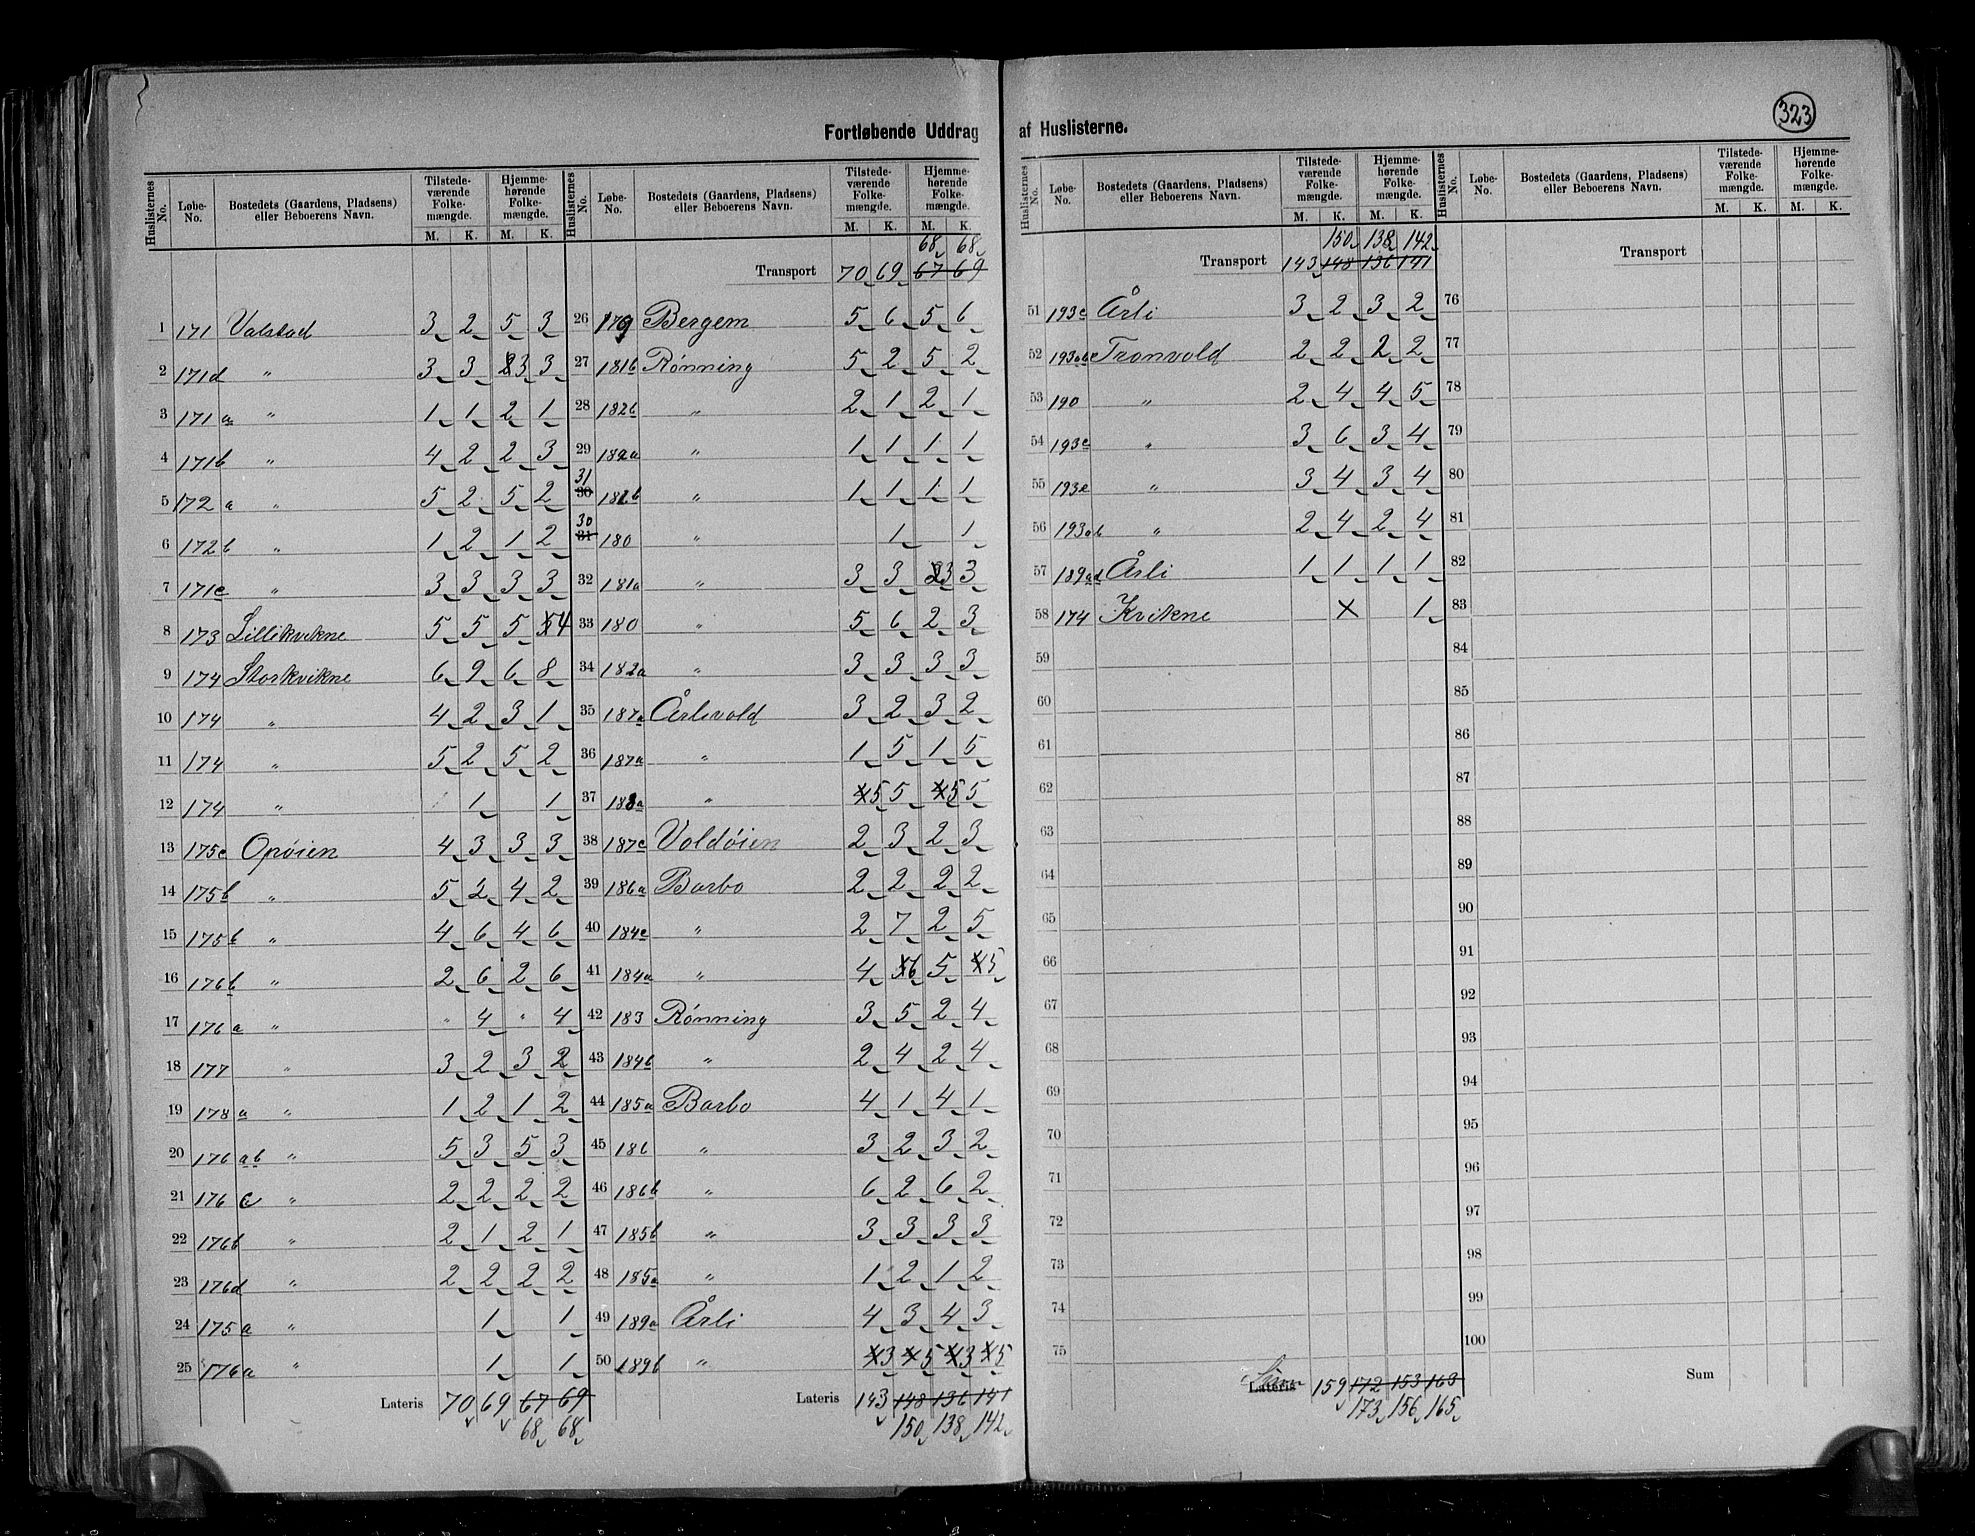 323
Fortløbende Uddrag af Huslisterne.
Huslisternes No. Løbe-No. Bostedets (Gaardens, Pladsens) eller Beboerens Navn. Tilstedeværende Folkemængde. M. K. Hjemmehørende Folkemængde. M. K.
1 171 Valstad 3 2 5 3
2 171d " 3 3 3 3
3 171a " 1 1 2 1
4 171b " 4 2 2 3
5 172 a " 5 2 5 2
6 172b " 1 2 1 2
7 171c " 3 3 3 3
8 173 Lillikvikne 5 5 5 4
9 174 Storkvikne 6 9 6 8
10 174 " 4 2 3 1
11 174 " 5 2 5 2
12 174 " 1 1
13 175c Opøien 4 3 3 3
14 175b " 5 2 4 2
15 175b " 4 6 4 6
16 176b " 2 6 2 6
17 176a " " 4 " 4
18 177 " 3 2 3 2
19 178a " 1 2 1 2
20 176 ab " 5 3 5 3
21 176 c " 2 2 2 2
22 176b " 2 1 2 1
23 176d " 2 2 2 2
24 175a " 1 1
25 176a " 1 1
Lateris 70 69 67 69
68 68
Huslisternes No. Løbe-No. Bostedets (Gaardens, Pladsens) eller Beboerens Navn. Tilstedeværende Folkemængde. M. K. Hjemmehørende Folkemængde. M. K.
68 68
Transport 70 69 67 69
26 179 Bergem 5 6 5 6
27 181b Rønning 5 2 5 2
28 182b " 2 1 2 1
29 182a " 1 1 1 1
31
30 181b " 1 1 1 1
30
31 180 " 1 1
32 181a " 3 3 3 3
33 180 " 5 6 2 3
34 182a " 3 3 3 3
35 187a Årlivold 3 2 3 2
36 187a " 1 5 1 5
37 188a " 5 5 5 5
38 187c Voldøien 2 3 2 3
39 186a Barbo 2 2 2 2
40 184c " 2 7 2 5
41 184a " 4 6 5 5
42 183 Rønning 3 5 2 4
43 184b " 2 4 2 4
44 185a Barbo 4 1 4 1
45 186 " 3 2 3 2
46 186b " 6 2 6 2
47 185b " 3 3 3 3
48 185a " 1 2 1 2
49 189a Årli 4 3 4 3
50 189b " 3 5 3 5
Lateris 143 148 136 141
150 138 142
Huslisternes No. Løbe-No. Bostedets (Gaardens, Pladsens) eller Beboerens Navn. Tilstedeværende Folkemængde. M. K. Hjemmehørende Folkemængde. M. K.
150 138 142
Transport 143 148 136 141
51 193c Årli 3 2 3 2
52 193abc Tronvold 2 2 2 2
53 190 " 2 4 4 5
54 193c " 3 6 3 4
55 193c " 3 4 3 4
56 193ab " 2 4 2 4
57 189ad Årli 1 1 1 1
58 174 Kvikne x 1
59
60
61
62
63
64
65
66
67
68
69
70
71
72
73
74
75
Lateris Sum 159 172 153 163
173 156 165
Huslisternes No. Løbe-No. Bostedets (Gaardens, Pladsens) eller Beboerens Navn. Tilstedeværende Folkemængde. M. K. Hjemmehørende Folkemængde. M. K.
Transport
76
77
78
79
80
81
82
83
84
85
86
87
88
89
90
91
92
93
94
95
96
97
98
99
100
Sum